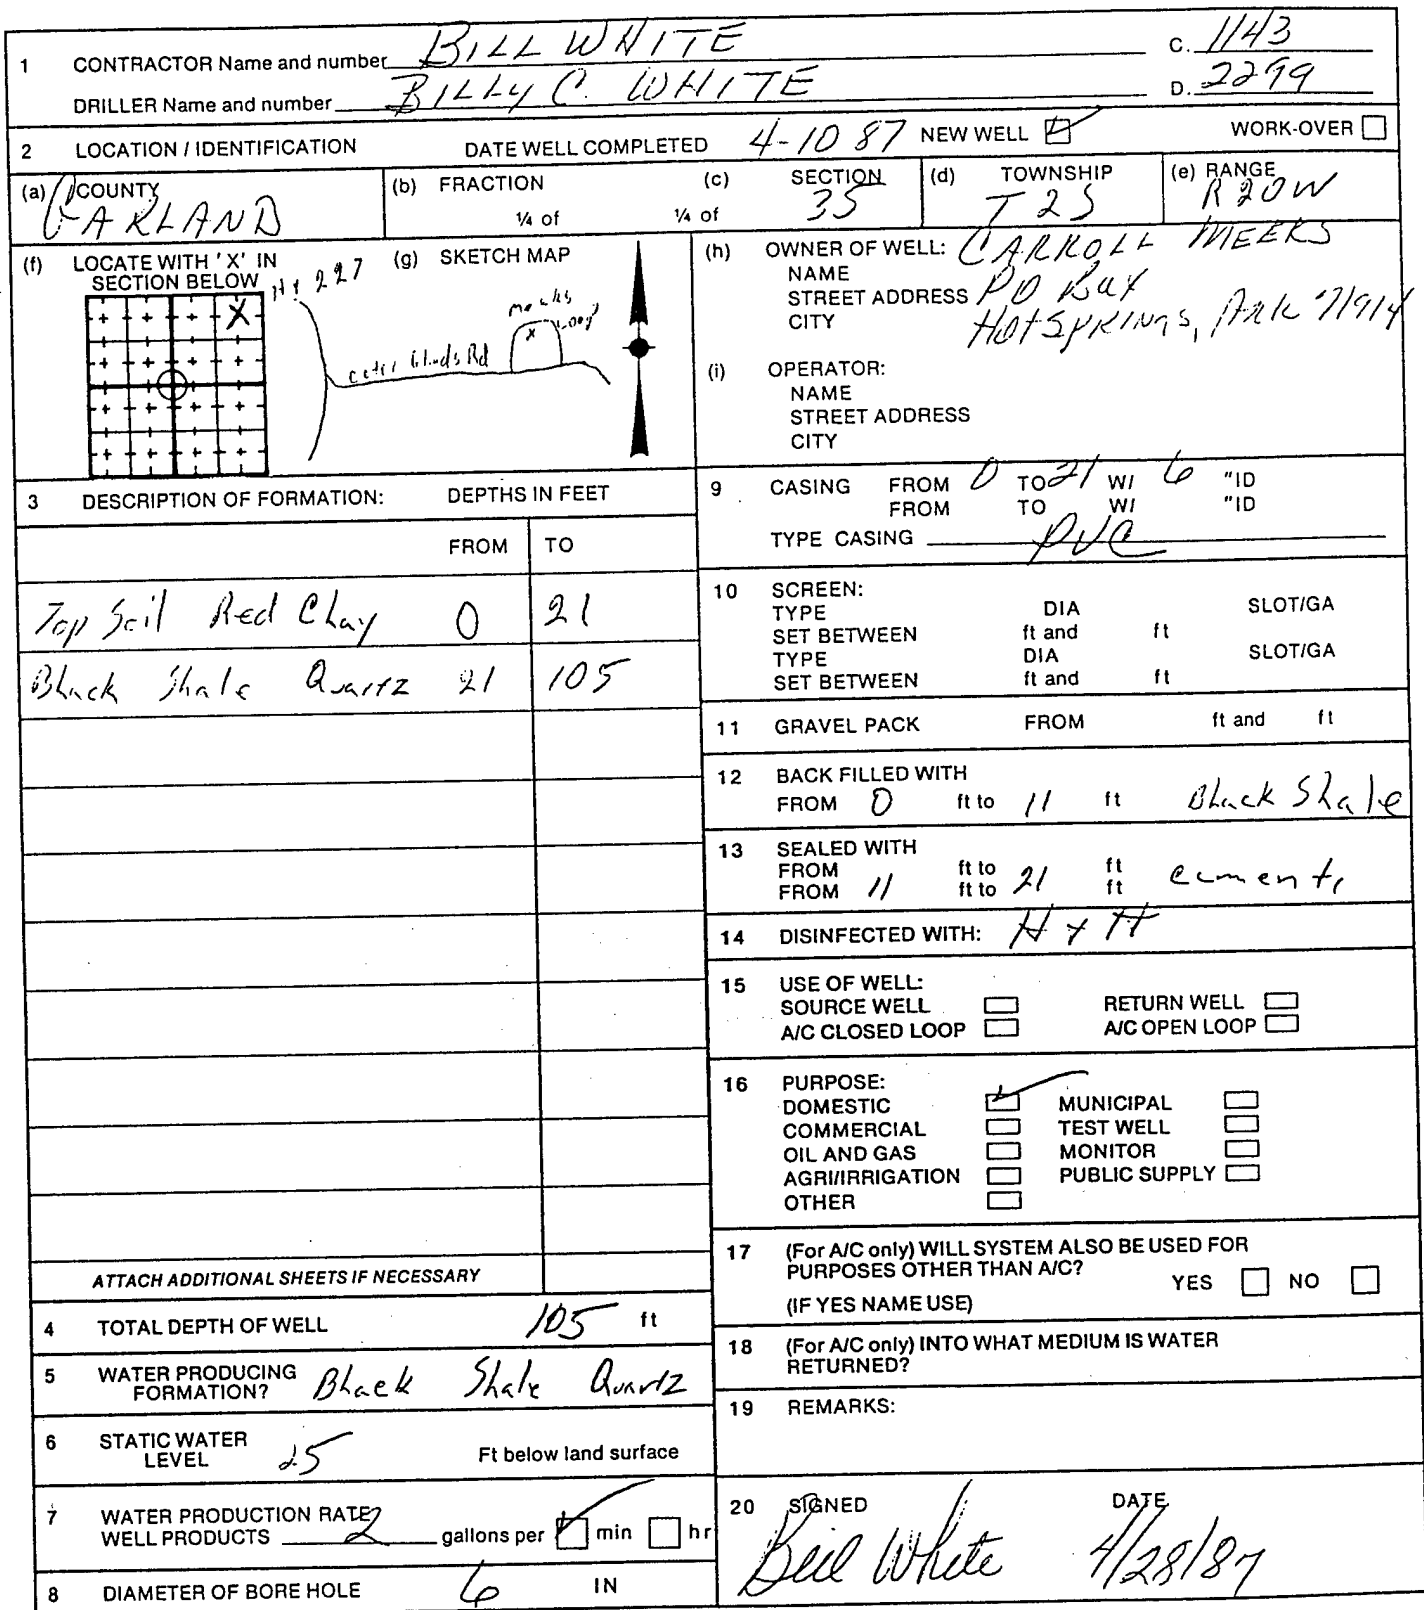 1 CONTRACTOR Name and number BILL WHITE C. 1143
DRILLER Name and number BILLY C. WHITE D. 2299
2 LOCATION / IDENTIFICATION DATE WELL COMPLETED 4-10 87 NEW WELL WORK-OVER
(a) COUNTY GARLAND
(b) FRACTION ¼ of ¼ of
(c) SECTION 35
(d) TOWNSHIP T 2 S
(e) RANGE R 20W
(f) LOCATE WITH 'X' IN SECTION BELOW
X
(g) SKETCH MAP
Hy 227
Rd
Loop
x
(h) OWNER OF WELL: CARROLL MEEKS
NAME
STREET ADDRESS PO Box
CITY Hot SPRINGS, Ark 71914
(i) OPERATOR:
NAME
STREET ADDRESS
CITY
3 DESCRIPTION OF FORMATION: DEPTHS IN FEET
FROM TO
Top Soil Red Clay 0 21
Black Shale Quartz 21 105
ATTACH ADDITIONAL SHEETS IF NECESSARY
4 TOTAL DEPTH OF WELL 105 ft
5 WATER PRODUCING FORMATION? Black Shale Quartz
6 STATIC WATER LEVEL 25 Ft below land surface
7 WATER PRODUCTION RATE
WELL PRODUCTS 2 gallons per min hr
8 DIAMETER OF BORE HOLE 6 IN
9 CASING FROM 0 TO 21 W/ 6 "ID
FROM TO W/ "ID
TYPE CASING PVC
10 SCREEN:
TYPE DIA SLOT/GA
SET BETWEEN ft and ft
TYPE DIA SLOT/GA
SET BETWEEN ft and ft
11 GRAVEL PACK FROM ft and ft
12 BACK FILLED WITH
FROM 0 ft to 11 ft Black Shale
13 SEALED WITH
FROM ft to ft
FROM 11 ft to 21 ft
14 DISINFECTED WITH: H + H
15 USE OF WELL:
SOURCE WELL RETURN WELL
A/C CLOSED LOOP A/C OPEN LOOP
16 PURPOSE:
DOMESTIC MUNICIPAL
COMMERCIAL TEST WELL
OIL AND GAS MONITOR
AGRI/IRRIGATION PUBLIC SUPPLY
OTHER
17 (For A/C only) WILL SYSTEM ALSO BE USED FOR
PURPOSES OTHER THAN A/C? YES NO
(IF YES NAME USE)
18 (For A/C only) INTO WHAT MEDIUM IS WATER
RETURNED?
19 REMARKS:
20 SIGNED DATE
Bill White 4/28/87